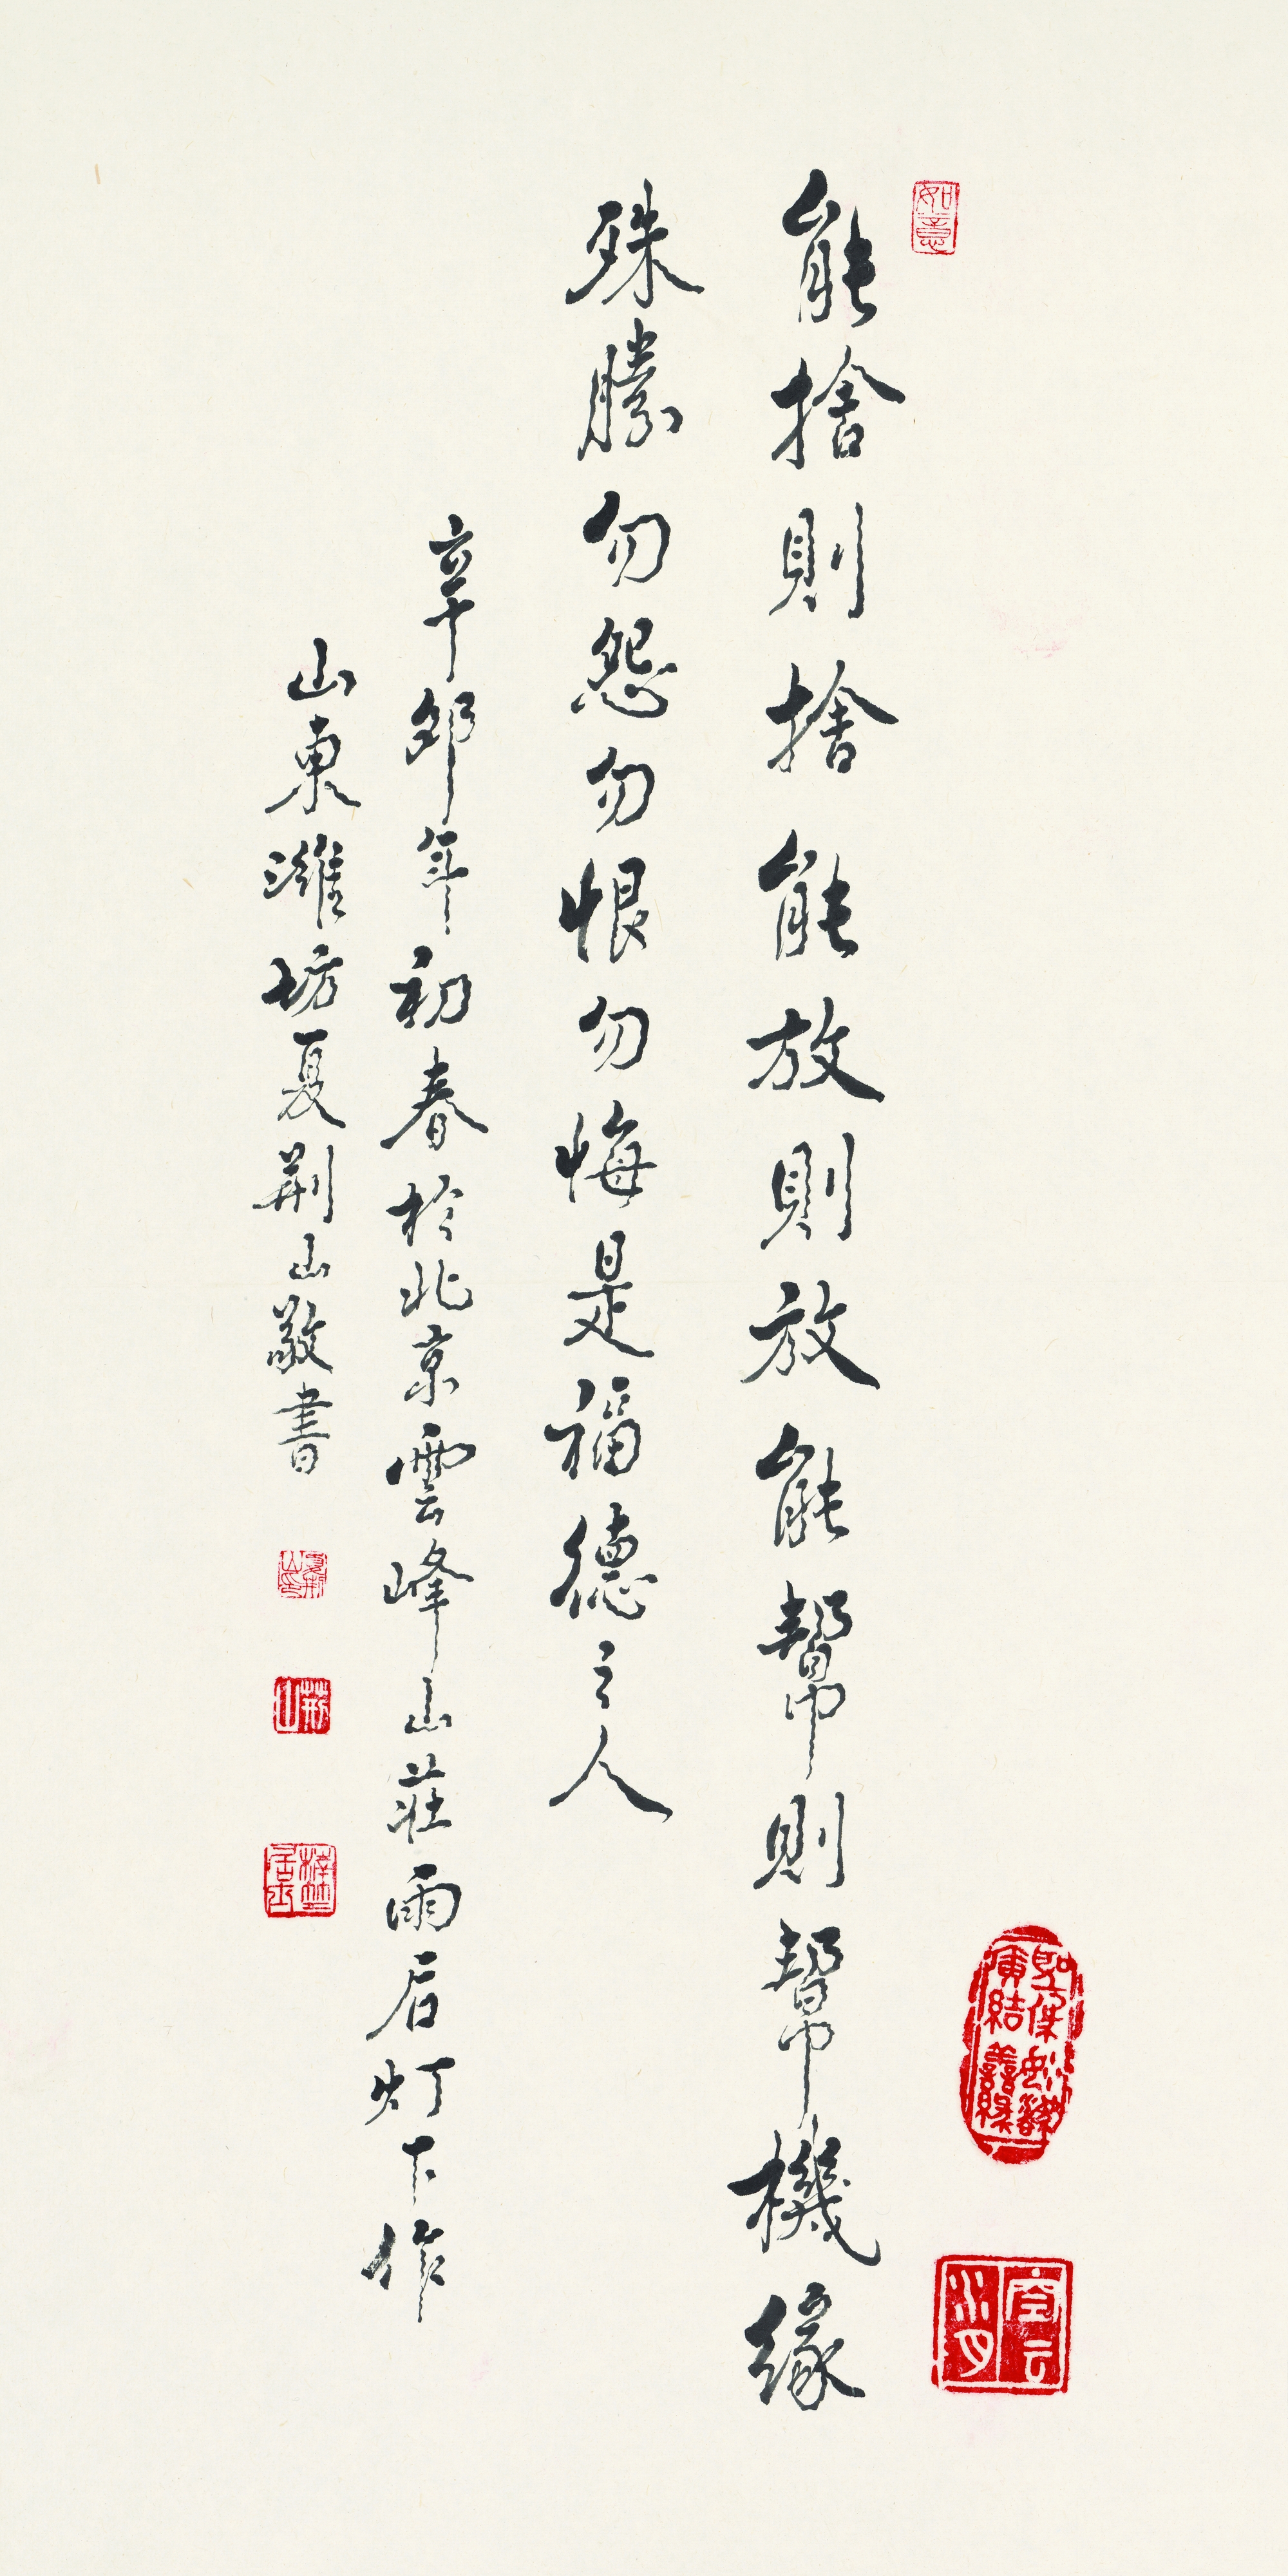 如意
能捨則捨能放則放能幫則幫機緣
殊勝勿怨勿恨勿悔是福德之人
辛卯年初春於北京雲峰山莊雨后灯下作
山東濰坊夏荊山敬書
荊山
空云水月